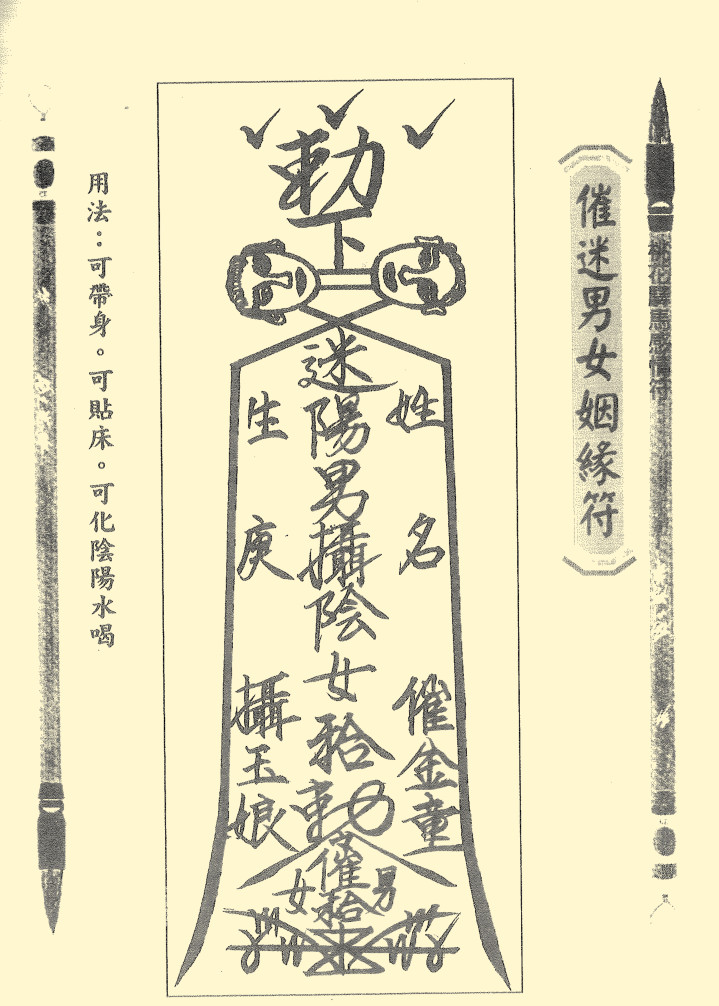 桃花驛馬感情符
催迷男女姻緣符
勅下
迷陽男攝陰女
姓名
生庚
催金童
攝玉娘
勅
催
男
女
用法：可帶身。可貼床。可化陰陽水喝